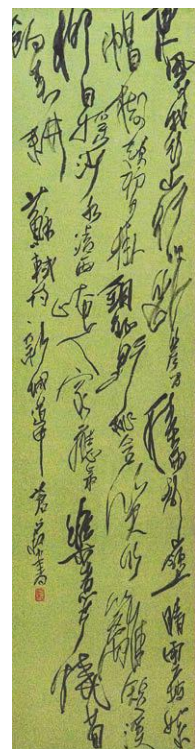 東風知我欲山行吹斷簷間積雨聲嶺上晴雲披絮
帽樹頭初日掛銅鉦野桃含笑竹籬短溪
柳自搖沙水清西人家應最樂煮芹燒筍
餉春耕 蘇軾 書